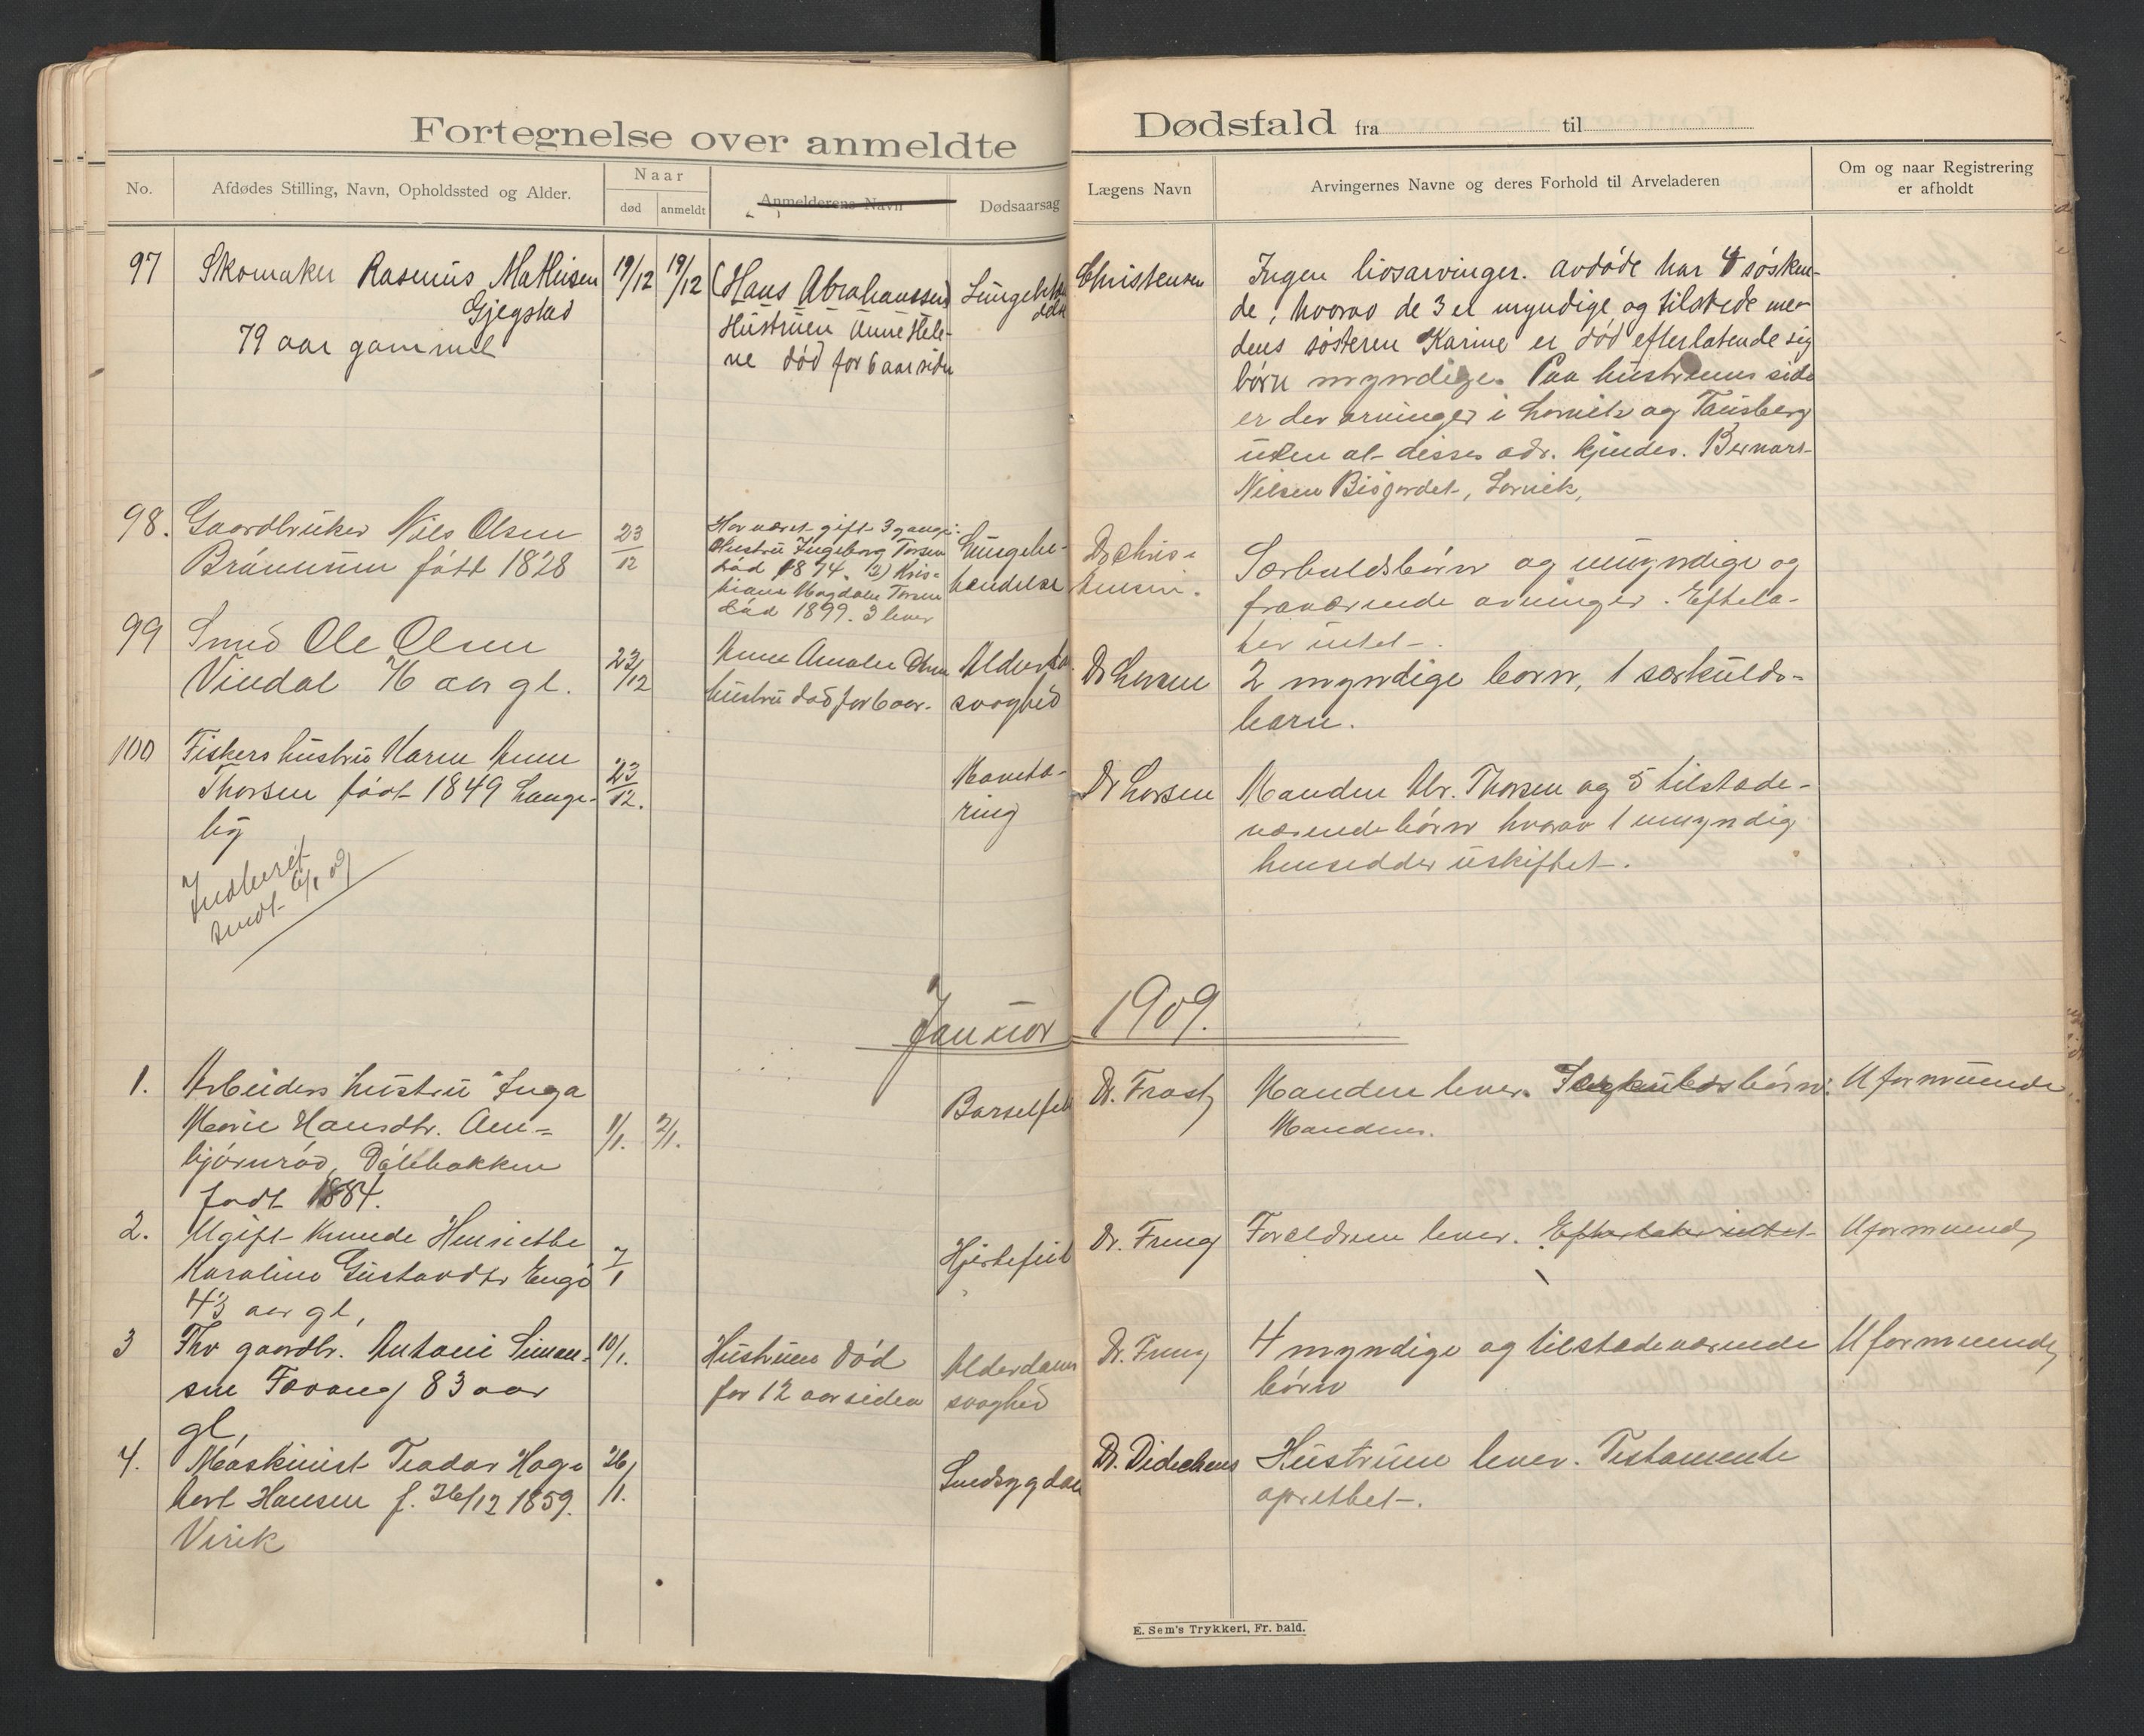 Fortegnelse over anmeldte Dødsfald fra til
No.
Afdødes Stilling, Navn, Opholdssted og Alder.
Naar
død
anmeldt
Anmelderens Navn
Dødsaarsag
Lægens Navn
Arvingernes Navne og deres Forhold til Arveladeren
Om og naar Registrering
er afholdt
97
Skomaker Rasmus Mathisen
Gjegstad
79 aar gammel
19/12
19/12
(Hans Abrahamsen)
Hustruen Anne Hele-
ne død for 6 aar siden
Christensen
Ingen livsarvinger. Avdøde har 4 søsken-
de, hvorav de 3 er myndige og tilstede me-
dens søsteren Karine er død efterlatende sig
børn myndige. Paa hustruens side
er der arvinger i Larvik og Tønsberg
uten at disses adr. kjendes. Bernart
Nilsen Bisgordet, Larvik,
98.
Gaardbruker Nils Olsen
Brunnum født 1828
23
12
Har været gift 3 gange.
Hustru Ingeborg Torsen
død 1874. 2) Kris-
tiane Magdale Torsen
død 1899. 3 lever
Lungebe-
tændelse
Dr Chris-
tensen.
Særkuldsbørn og umyndige og
fraværende arvinger. Efterla-
ter intet.
99
Smed Ole Olsen
Vindal 76 aar gl.
23/12
Anne Amalie Olsen
hustru død for 6 aar.
svaghed
Dr Larsen
2 myndige børn, 1 særkulds-
barn.
100
Fiskers hustru Karen Anne
Thorsen født 1849 Lange-
by
23
12.
Dr Larsen
Manden Abr. Thorsen og 5 tilstede-
værende børn hvorav 1 umyndig
hensidder uskiftet.
Indberet
sendt 6/1 09
Januar 1909.
1.
Arbeiders hustru Inga
Marie Hansdtr. Am-
bjørnrød, Dølebakken
født 1884.
1/1.
2/1.
Barselfeb
Dr. Frost
Manden lever. Særkuldsbørn.
Manden.
Uformuende
2.
Ugift kvinde Henriette
Karoline Gustavdtr Engø
43 aar gl,
7
1
Hjertefeil
Dr. Freng
Forældrene lever. Efterlater intet
Uformuende
3
Fhv gaardbr. Antoni Simon-
sen Fevang 83 aar
gl,
10/1.
Hustruen død
for 12 aar siden
Alderdoms
svaghed
Dr. Freng
4 myndige og tilstedeværende
børn
Uformuende
4.
Maskinist Teodor Hag-
bert Hansen f. 26/12 1859.
Virik
26/1.
Sindsygdom
Dr. Didrichens
Hustruen lever. Testamente
oprettet.
E. Sem's Trykkeri, Fr.hald.